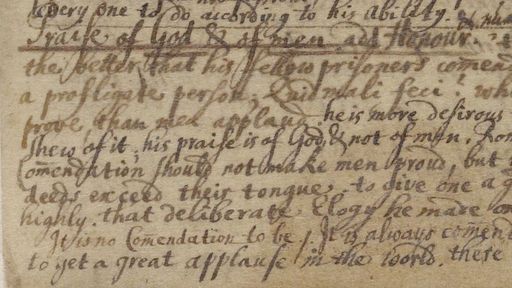 every one to do according to his ability.
Praise of God & of men. all Honour.
the better that his fellow prisoners comend
a profligate person, Quid mali feci? who
prove than men applaud. he is more desirous
shew of it. his praise is of God, & not of men. Rom
omendation should not make men proud, but
deeds exceed their tongue. to give one a g
highly. that deliberate Elogy he made on
It is no Comendation to be, it is always comen
to get a great applause in the world. there